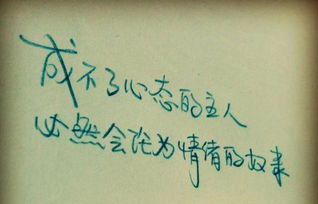 成不了心态的主人
必然会沦为情绪的奴隶